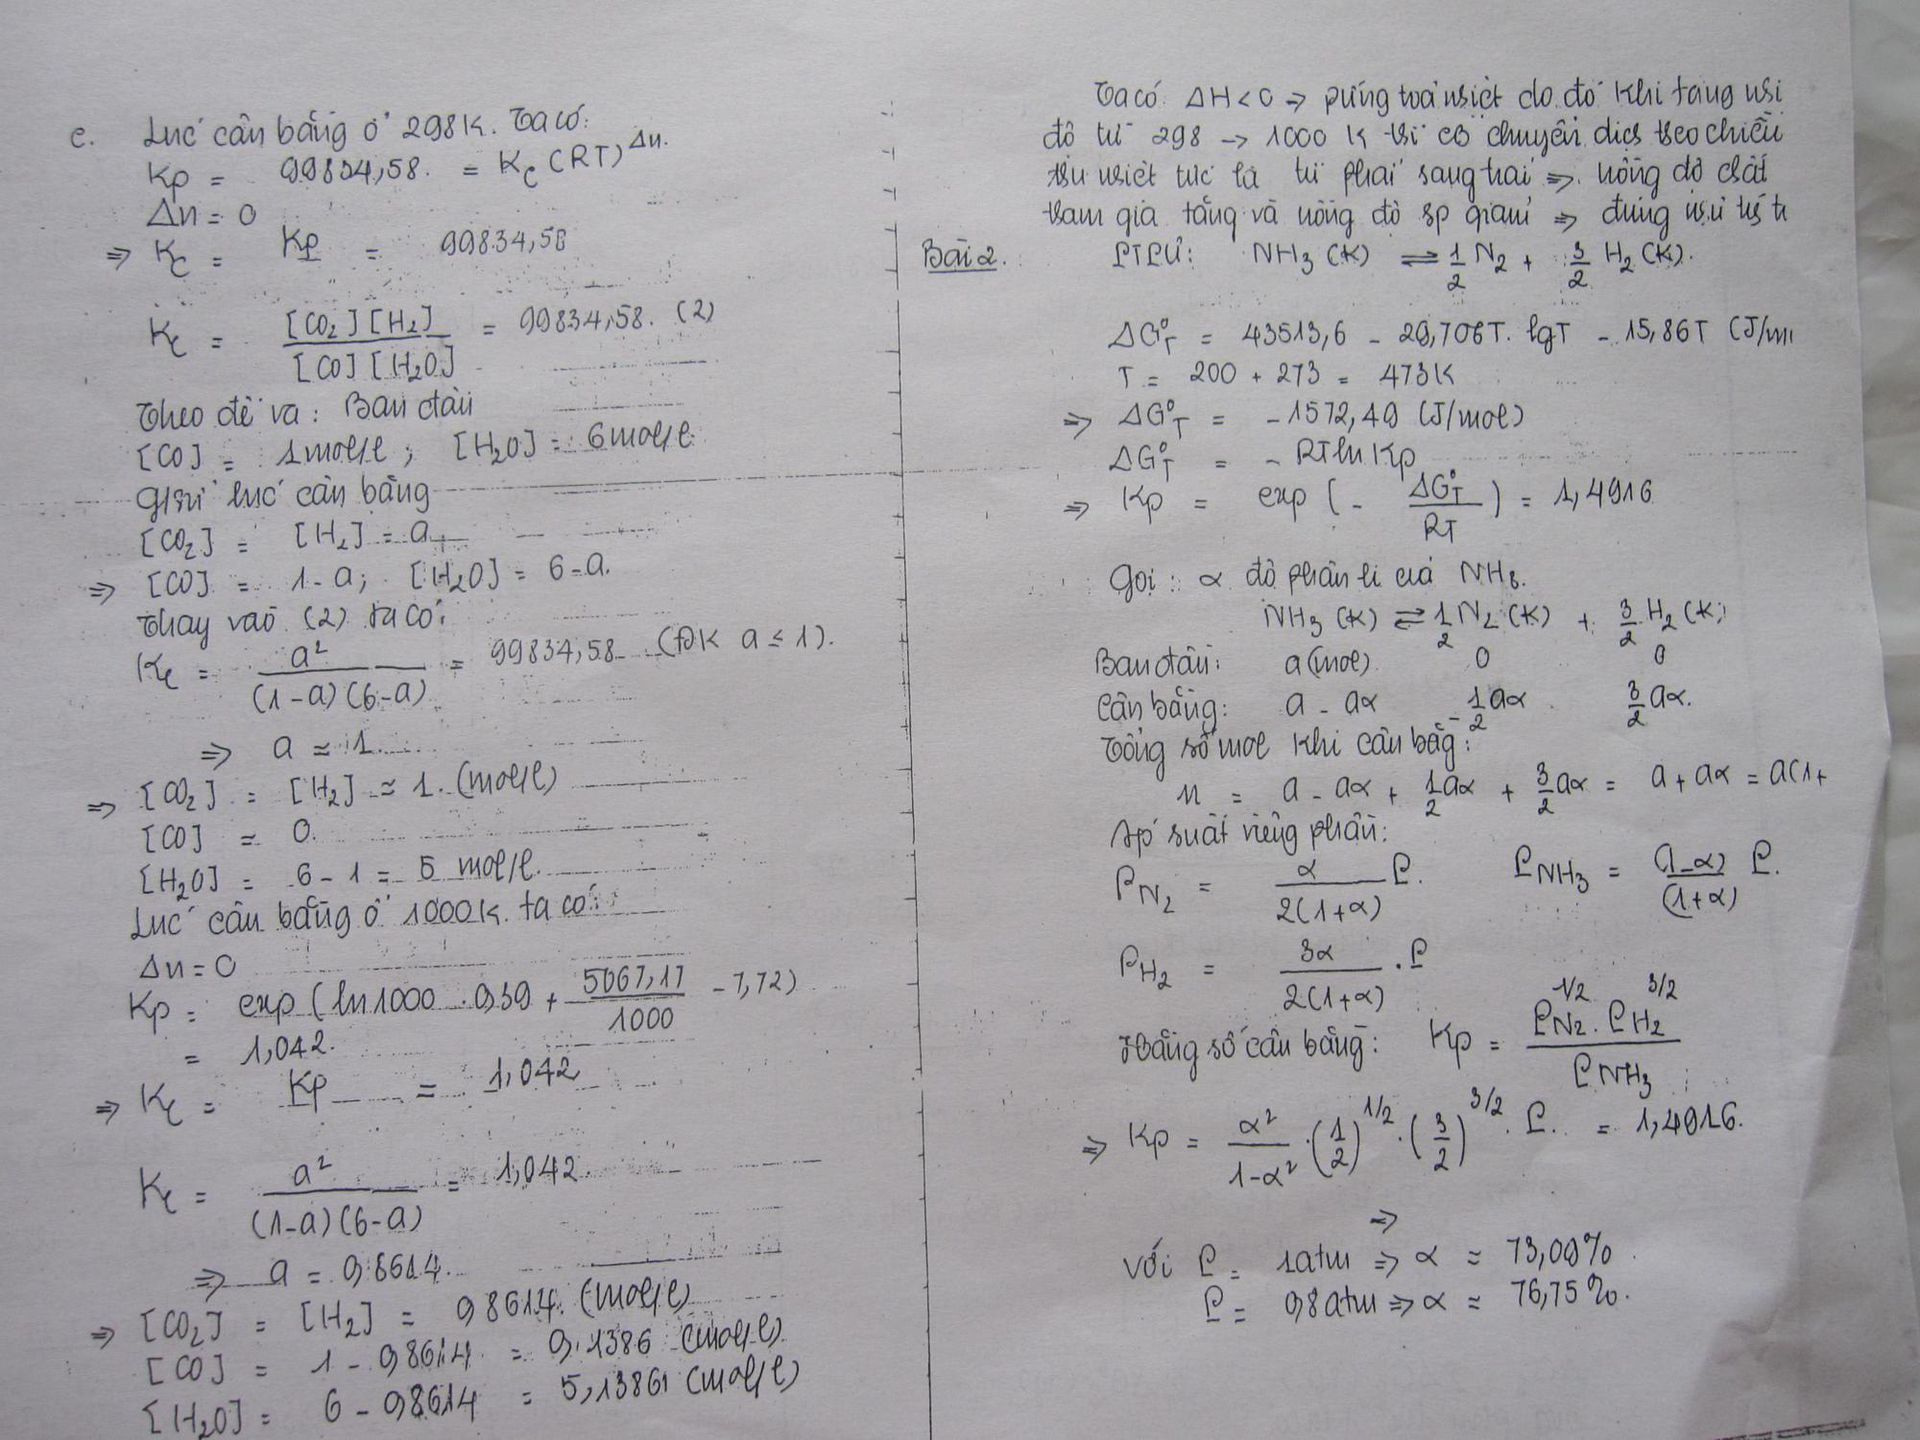 c. Lúc cân bằng ở 298K. Ta có:
Kp = 99834,58. = K_C (RT)^Δn.
Δn = 0
⇒ K_C = Kp = 99834,58
K_C = [CO₂][H₂] / [CO][H₂O] = 99834,58. (2)
Theo đề ra: Ban đầu
[CO] = 1mol/l; [H₂O] = 6mol/l
Gsử lúc cân bằng
[CO₂] = [H₂] = a
⇒ [CO] = 1-a; [H₂O] = 6-a.
Thay vào (2) ta có:
K_C = a² / (1-a)(6-a) = 99834,58 (ĐK a ≤ 1).
⇒ a ≈ 1.
⇒ [CO₂] = [H₂] ≈ 1. (mol/l)
[CO] ≈ 0.
[H₂O] = 6-1 = 5 mol/l.
Lúc cân bằng ở 1000K. ta có:
Δn = 0
Kp = exp (ln1000 . 0,39 + 5067,17/1000 - 7,72)
= 1,042.
⇒ K_C = Kp = 1,042
K_C = a² / (1-a)(6-a) = 1,042.
⇒ a = 0,8614.
⇒ [CO₂] = [H₂] = 0,8614. (mol/l)
[CO] = 1 - 0,8614 = 0,1386 (mol/l)
[H₂O] = 6 - 0,8614 = 5,1386 (mol/l)
Ta có ΔH < 0 ⇒ pứng toả nhiệt do đó khi tăng nhi
độ từ 298 → 1000 K thì cb chuyển dịch theo chiều
thu nhiệt tức là từ phải sang trái ⇒ nồng độ chất
tham gia tăng và nồng độ sp giảm ⇒ đúng như
Bài 2. PTPƯ: NH₃ (K) ⇌ 1/2 N₂ + 3/2 H₂ (K).
ΔG°_T = 43513,6 - 29,706T. lgT - 15,86T (J/m
T = 200 + 273 = 473K
⇒ ΔG°_T = -1572,49 (J/mol)
ΔG°_T = - RTlnKp
⇒ Kp = exp (- ΔG°_T / RT) = 1,4916
Gọi: α độ phân li của NH₃.
NH₃ (K) ⇌ 1/2 N₂ (K) + 3/2 H₂ (K)
Ban đầu: a (mol) 0 0
Cân bằng: a - aα 1/2 aα 3/2 aα.
Tổng số mol khi cân bằng:
n = a - aα + 1/2 aα + 3/2 aα = a + aα = a(1+
Áp suất riêng phần:
P_N₂ = α / 2(1+α) P. P_NH₃ = (1-α) / (1+α) P.
P_H₂ = 3α / 2(1+α) . P
Hằng số cân bằng: Kp = P_N₂^1/2 . P_H₂^3/2 / P_NH₃
⇒ Kp = α² / 1-α² . (1/2)^1/2 . (3/2)^3/2 . P. = 1,4916.
⇒
Với P = 1atm ⇒ α ≈ 73,09%
P = 0,8atm ⇒ α ≈ 76,75%.